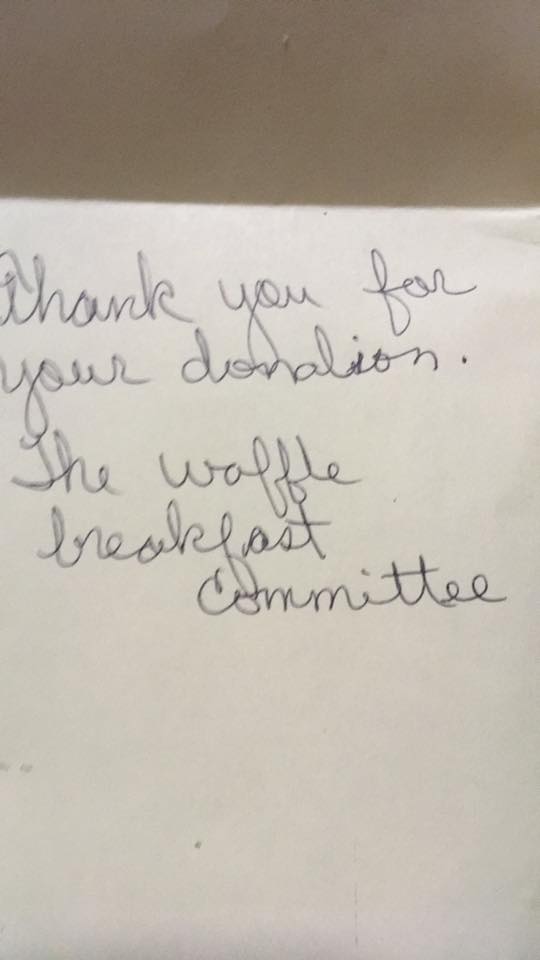 Thank you for
your donation.
The waffle
breakfast
Committee